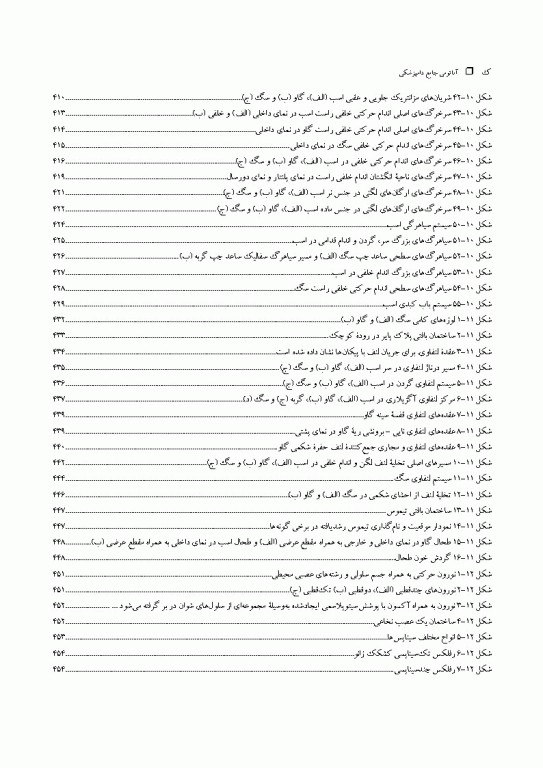 ک ❐ آناتومی جامع دامپزشکی
شکل ۱۰-۴۲ شریان‌های مزانتریک جلویی و عقبی اسب (الف)، گاو (ب) و سگ (ج)......۴۱۰
شکل ۱۰-۴۳ سرخرگ‌های اصلی اندام حرکتی خلفی راست اسب در نمای داخلی (الف) و خلفی (ب)......۴۱۳
شکل ۱۰-۴۴ سرخرگ‌های اصلی اندام حرکتی خلفی راست گاو در نمای داخلی......۴۱۴
شکل ۱۰-۴۵ سرخرگ‌های اندام حرکتی خلفی سگ در نمای داخلی......۴۱۵
شکل ۱۰-۴۶ سرخرگ‌های اندام حرکتی خلفی در اسب (الف)، گاو (ب) و سگ (ج)......۴۱۶
شکل ۱۰-۴۷ سرخرگ‌های ناحیهٔ انگشتان اندام خلفی راست در نمای پلنتار و نمای دورسال......۴۱۹
شکل ۱۰-۴۸ سرخرگ‌های ارگان‌های لگنی در جنس نر اسب (الف)، گاو (ب) و سگ (ج)......۴۲۱
شکل ۱۰-۴۹ سرخرگ‌های ارگان‌های لگنی در جنس ماده اسب (الف)، گاو (ب) و سگ (ج)......۴۲۲
شکل ۱۰-۵۰ سیستم سیاهرگی اسب......۴۲۴
شکل ۱۰-۵۱ سیاهرگ‌های بزرگ سر، گردن و اندام قدامی در اسب......۴۲۵
شکل ۱۰-۵۲ سیاهرگ‌های سطحی ساعد چپ سگ (الف) و مسیر سیاهرگ سفالیک ساعد چپ گربه (ب)......۴۲۶
شکل ۱۰-۵۳ سیاهرگ‌های بزرگ اندام خلفی در اسب......۴۲۷
شکل ۱۰-۵۴ سیاهرگ‌های سطحی اندام حرکتی خلفی راست سگ......۴۲۸
شکل ۱۰-۵۵ سیستم باب کبدی اسب......۴۲۹
شکل ۱۱-۱ لوزه‌های کامی سگ (الف) و گاو (ب)......۴۳۲
شکل ۱۱-۲ ساختمان بافتی پلاک پایر در رودهٔ کوچک......۴۳۳
شکل ۱۱-۳ عقدهٔ لنفاوی، برای جریان لنف با پیکان‌ها نشان داده شده است......۴۳۴
شکل ۱۱-۴ مسیر درناژ لنفاوی در سر اسب (الف)، گاو (ب) و سگ (ج)......۴۳۵
شکل ۱۱-۵ سیستم لنفاوی گردن در اسب (الف)، گاو (ب) و سگ (ج)......۴۳۶
شکل ۱۱-۶ مرکز لنفاوی آگزیلاری در اسب (الف)، گاو (ب)، گربه (ج) و سگ (د)......۴۳۷
شکل ۱۱-۷ عقده‌های لنفاوی قفسهٔ سینه گاو......۴۳۹
شکل ۱۱-۸ عقده‌های لنفاوی نایی - برونشی ریهٔ گاو در نمای پشتی......۴۳۹
شکل ۱۱-۹ عقده‌های لنفاوی و مجاری جمع‌کنندهٔ لنف حفرهٔ شکمی گاو......۴۴۰
شکل ۱۱-۱۰ مسیرهای اصلی تخلیهٔ لنف لگن و اندام خلفی در اسب (الف)، گاو (ب) و سگ (ج)......۴۴۲
شکل ۱۱-۱۱ سیستم لنفاوی سگ......۴۴۴
شکل ۱۱-۱۲ تخلیهٔ لنف از احشای شکمی در سگ (الف) و گاو (ب)......۴۴۶
شکل ۱۱-۱۳ ساختمان بافتی تیموس......۴۴۷
شکل ۱۱-۱۴ نمودار موقعیت و نام‌گذاری تیموس رشدیافته در برخی گونه‌ها......۴۴۷
شکل ۱۱-۱۵ طحال گاو در نمای داخلی و خارجی به همراه مقطع عرضی (الف) و طحال اسب در نمای داخلی به همراه مقطع عرضی (ب)......۴۴۸
شکل ۱۱-۱۶ گردش خون طحال......۴۴۸
شکل ۱۲-۱ نورون حرکتی به همراه جسم سلولی و رشته‌های عصبی محیطی......۴۵۱
شکل ۱۲-۲ نورون‌های چندقطبی (الف)، دوقطبی (ب) تک‌قطبی (ج)......۴۵۱
شکل ۱۲-۳ نورون به همراه آکسون با پوشش سیتوپلاسمی ایجادشده به‌وسیلهٔ مجموعه‌ای از سلول‌های شوان در بر گرفته می‌شود......۴۵۲
شکل ۱۲-۴ ساختمان یک عصب نخاعی......۴۵۲
شکل ۱۲-۵ انواع مختلف سیناپس‌ها......۴۵۳
شکل ۱۲-۶ رفلکس تک‌سیناپسی کشکک زانو......۴۵۴
شکل ۱۲-۷ رفلکس چندسیناپسی......۴۵۴